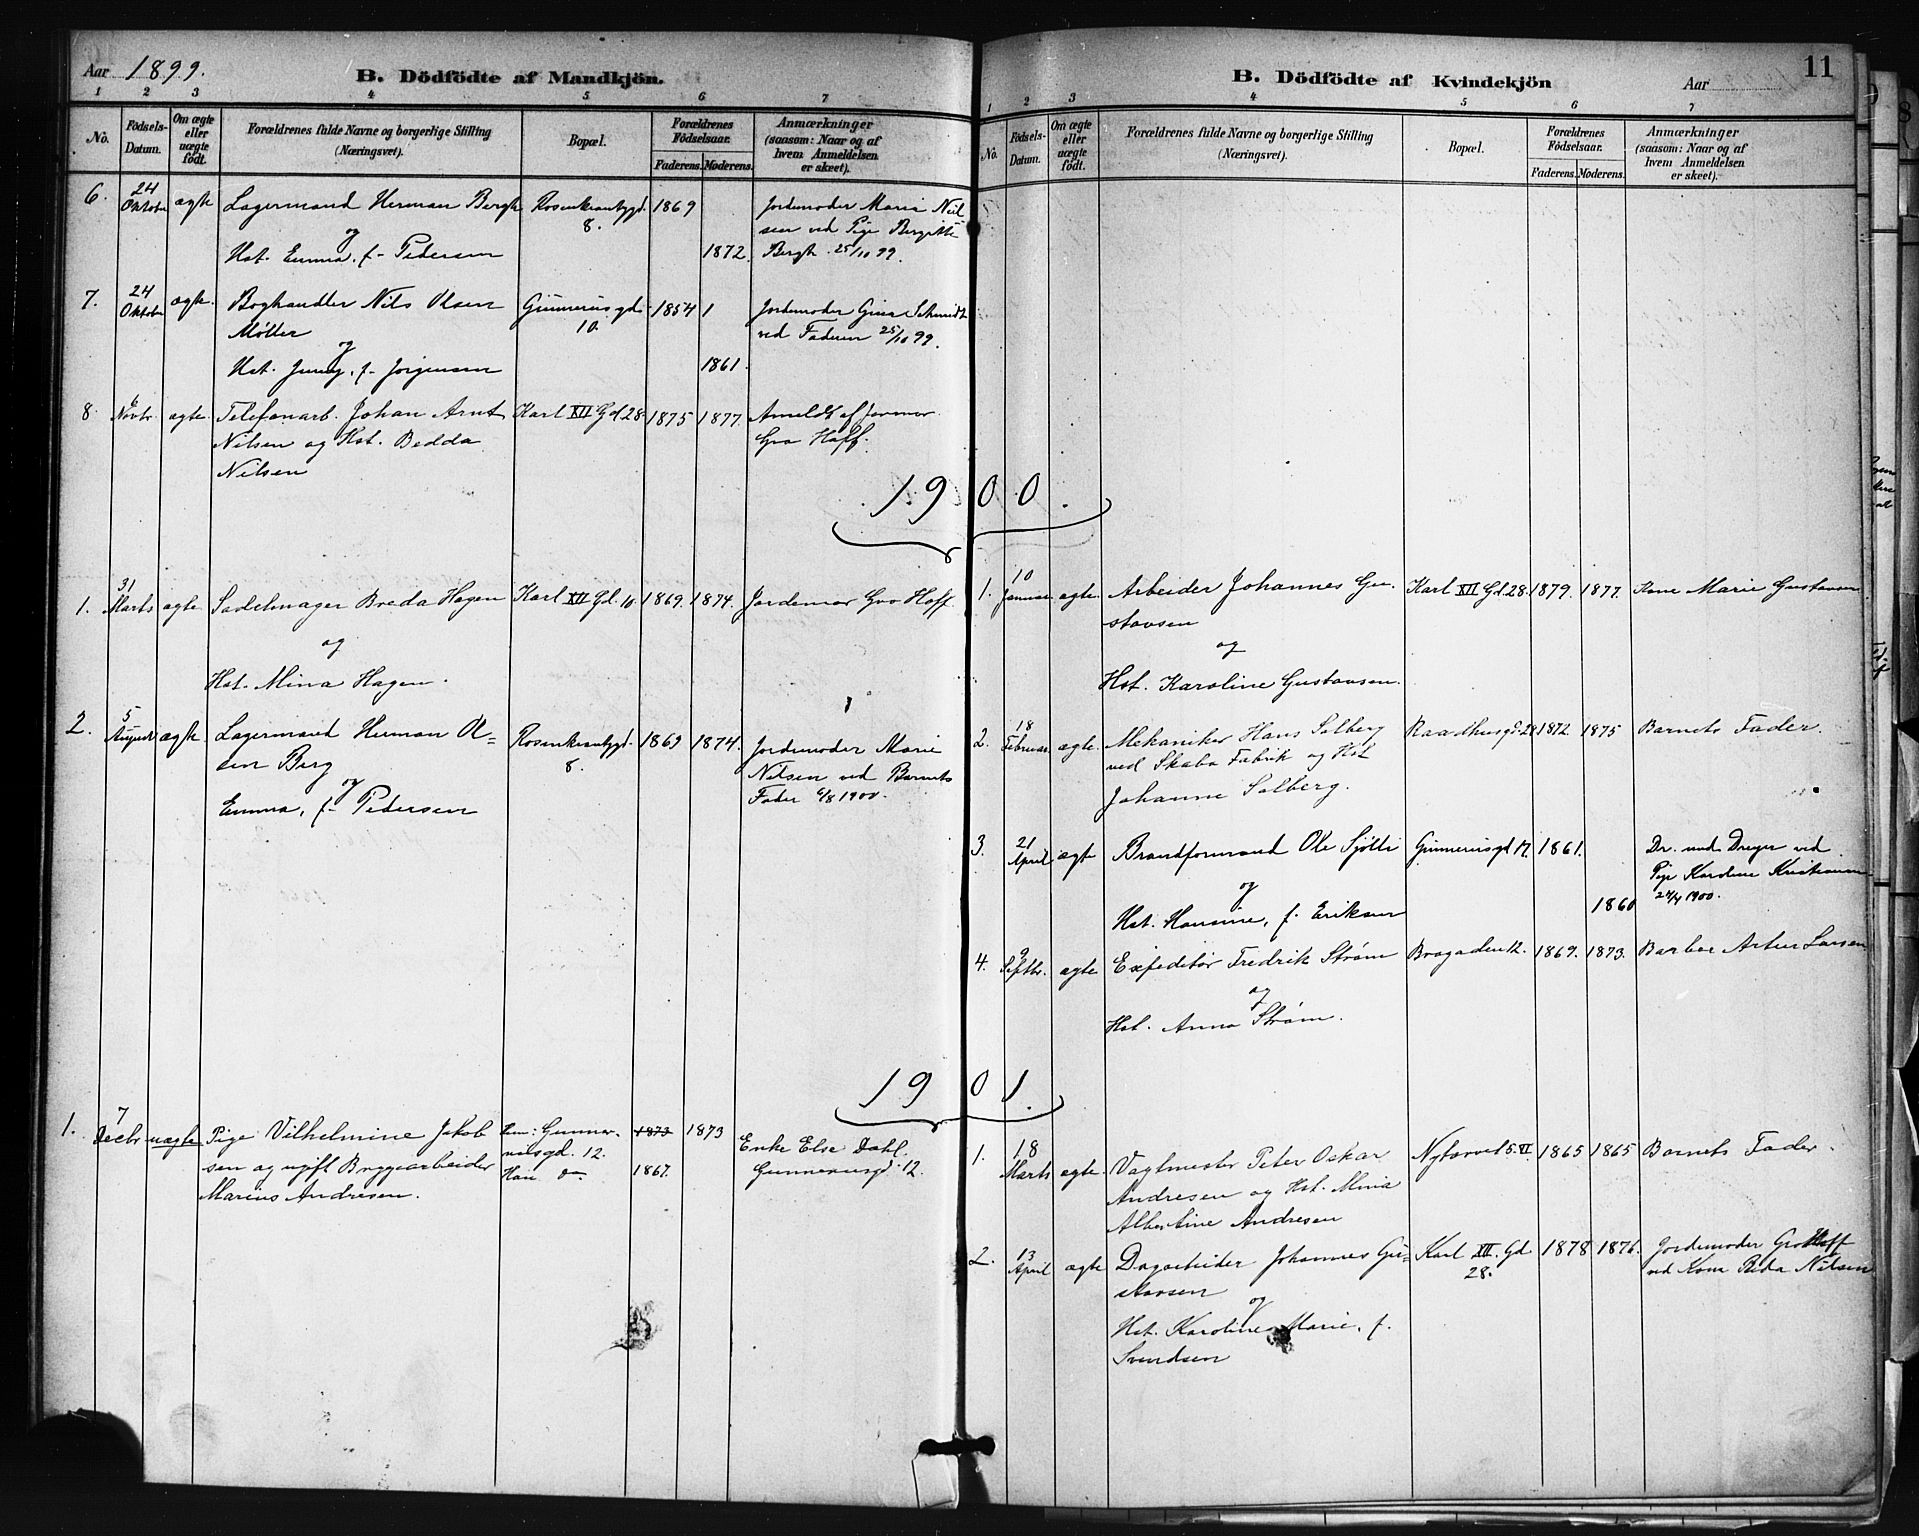 Aar 1899.
B. Dödfödte af Mandkjön.
1 2 3 4 5 6 7
No.
Födsels-
Datum.
Om ægte
eller
uægte
födt.
Forældrenes fulde Navne og borgerlige Stilling
(Næringsvei).
Bopæl.
Forældrenes
Födselsaar.
Faderens. Moderens.
Anmærkninger
(saasom: Naar og af
hvem Anmeldelsen
er skeet).
6. 24 Oktober ægte Lagermand Herman Bergh Rosenkrantzgd. 1869 Jordemoder Marie Niel
og 8. sen ved Pige Bergitte
Hst. Emma, f. Pedersen 1872. Bergh 25/10 99.
7. 24 Oktober ægte Boghandler Nils Olsen Gunnerusgd. 1854 Jordemoder Gina Schmidt
Møller 10. ved Faderen 25/10 99.
og
Hst. Jenny, f. Jørgensen 1861.
8. 6 Novbr. ægte. Telefonarb. Johan Arnt Karl XII Gd. 28. 1875 1877. Anmeldt af jormor
Nilsen og Hst. Bedda Gro Hoff.
Nilsen
1900.
1. 31 Marts ægte Sadelmager Breda Hagen Karl XII Gd. 10. 1869. 1874. Jordemor Gro Hoff.
og
Hst. Mina Hagen.
2. 5 August ægte. Lagermand Herman Ol=
sen Berg Rosenkrantzgd. 8. 1869 1874. Jordemoder Marie
og Nilsen ved Barnets
Emma, f. Pedersen Fader 6/8 1900.
1901.
1. 7 Decbr uægte Pige Vilhelmine Jakob Hun: Gunner- 1873 1873 Enke Else Dahl
sen og ugift Bryggearbeider usgd. 12. 1867. Gunnerusgd. 12.
Marius Andresen. Han do
11
B. Dödfödte af Kvindekjön
Aar
1 2 3 4 5 6 7
No.
Födsels-
Datum.
Om ægte
eller
uægte
födt.
Forældrenes fulde Navne og borgerlige Stilling
(Næringsvei).
Bopæl.
Forældrenes
Födselsaar.
Faderens. Moderens.
Anmærkninger
(saasom: Naar og af
hvem Anmeldelsen
er skeet).
1. 10 Januar ægte. Arbeider Johannes Gu- Karl XII Gd. 28. 1879. 1877. Kone Marie Gustavsen
stavsen
og
Hst. Karoline Gustavsen.
2. 18 Februar ægte. Mekaniker Hans Solberg Raadhusgd. 28 1872. 1875 Barnets Fader.
ved Skabo Fabrik og Hst
Johanne Solberg.
3. 21 April ægte Brandformand Ole Sjølli Gunnerusgd 17. 1861. Dr. med Dreyer ved
og Pige Karoline Kristiansen
Hst. Hansine, f. Eriksen 1860 24/4 1900.
4. 9 Septbr. ægte Expeditør Fredrik Strøm Brogaden 12. 1869. 1873. Barber Artur Larsen
og
Hst. Anna Strøm.
1. 18 Marts ægte. Vagtmester Peter Oskar Nytorvet 5. VI. 1865 1865 Barnets Fader.
Andresen og Hst. Mina
Albertine Andresen
2. 13 April ægte Dagarbeider Johannes Gu= Karl XII. Gd 1878 1876. Jordemoder Gro Hoff
stavsen 28. ved Kone Beda Nilsen
og
Hst. Karoline Marie, f.
Svendsen